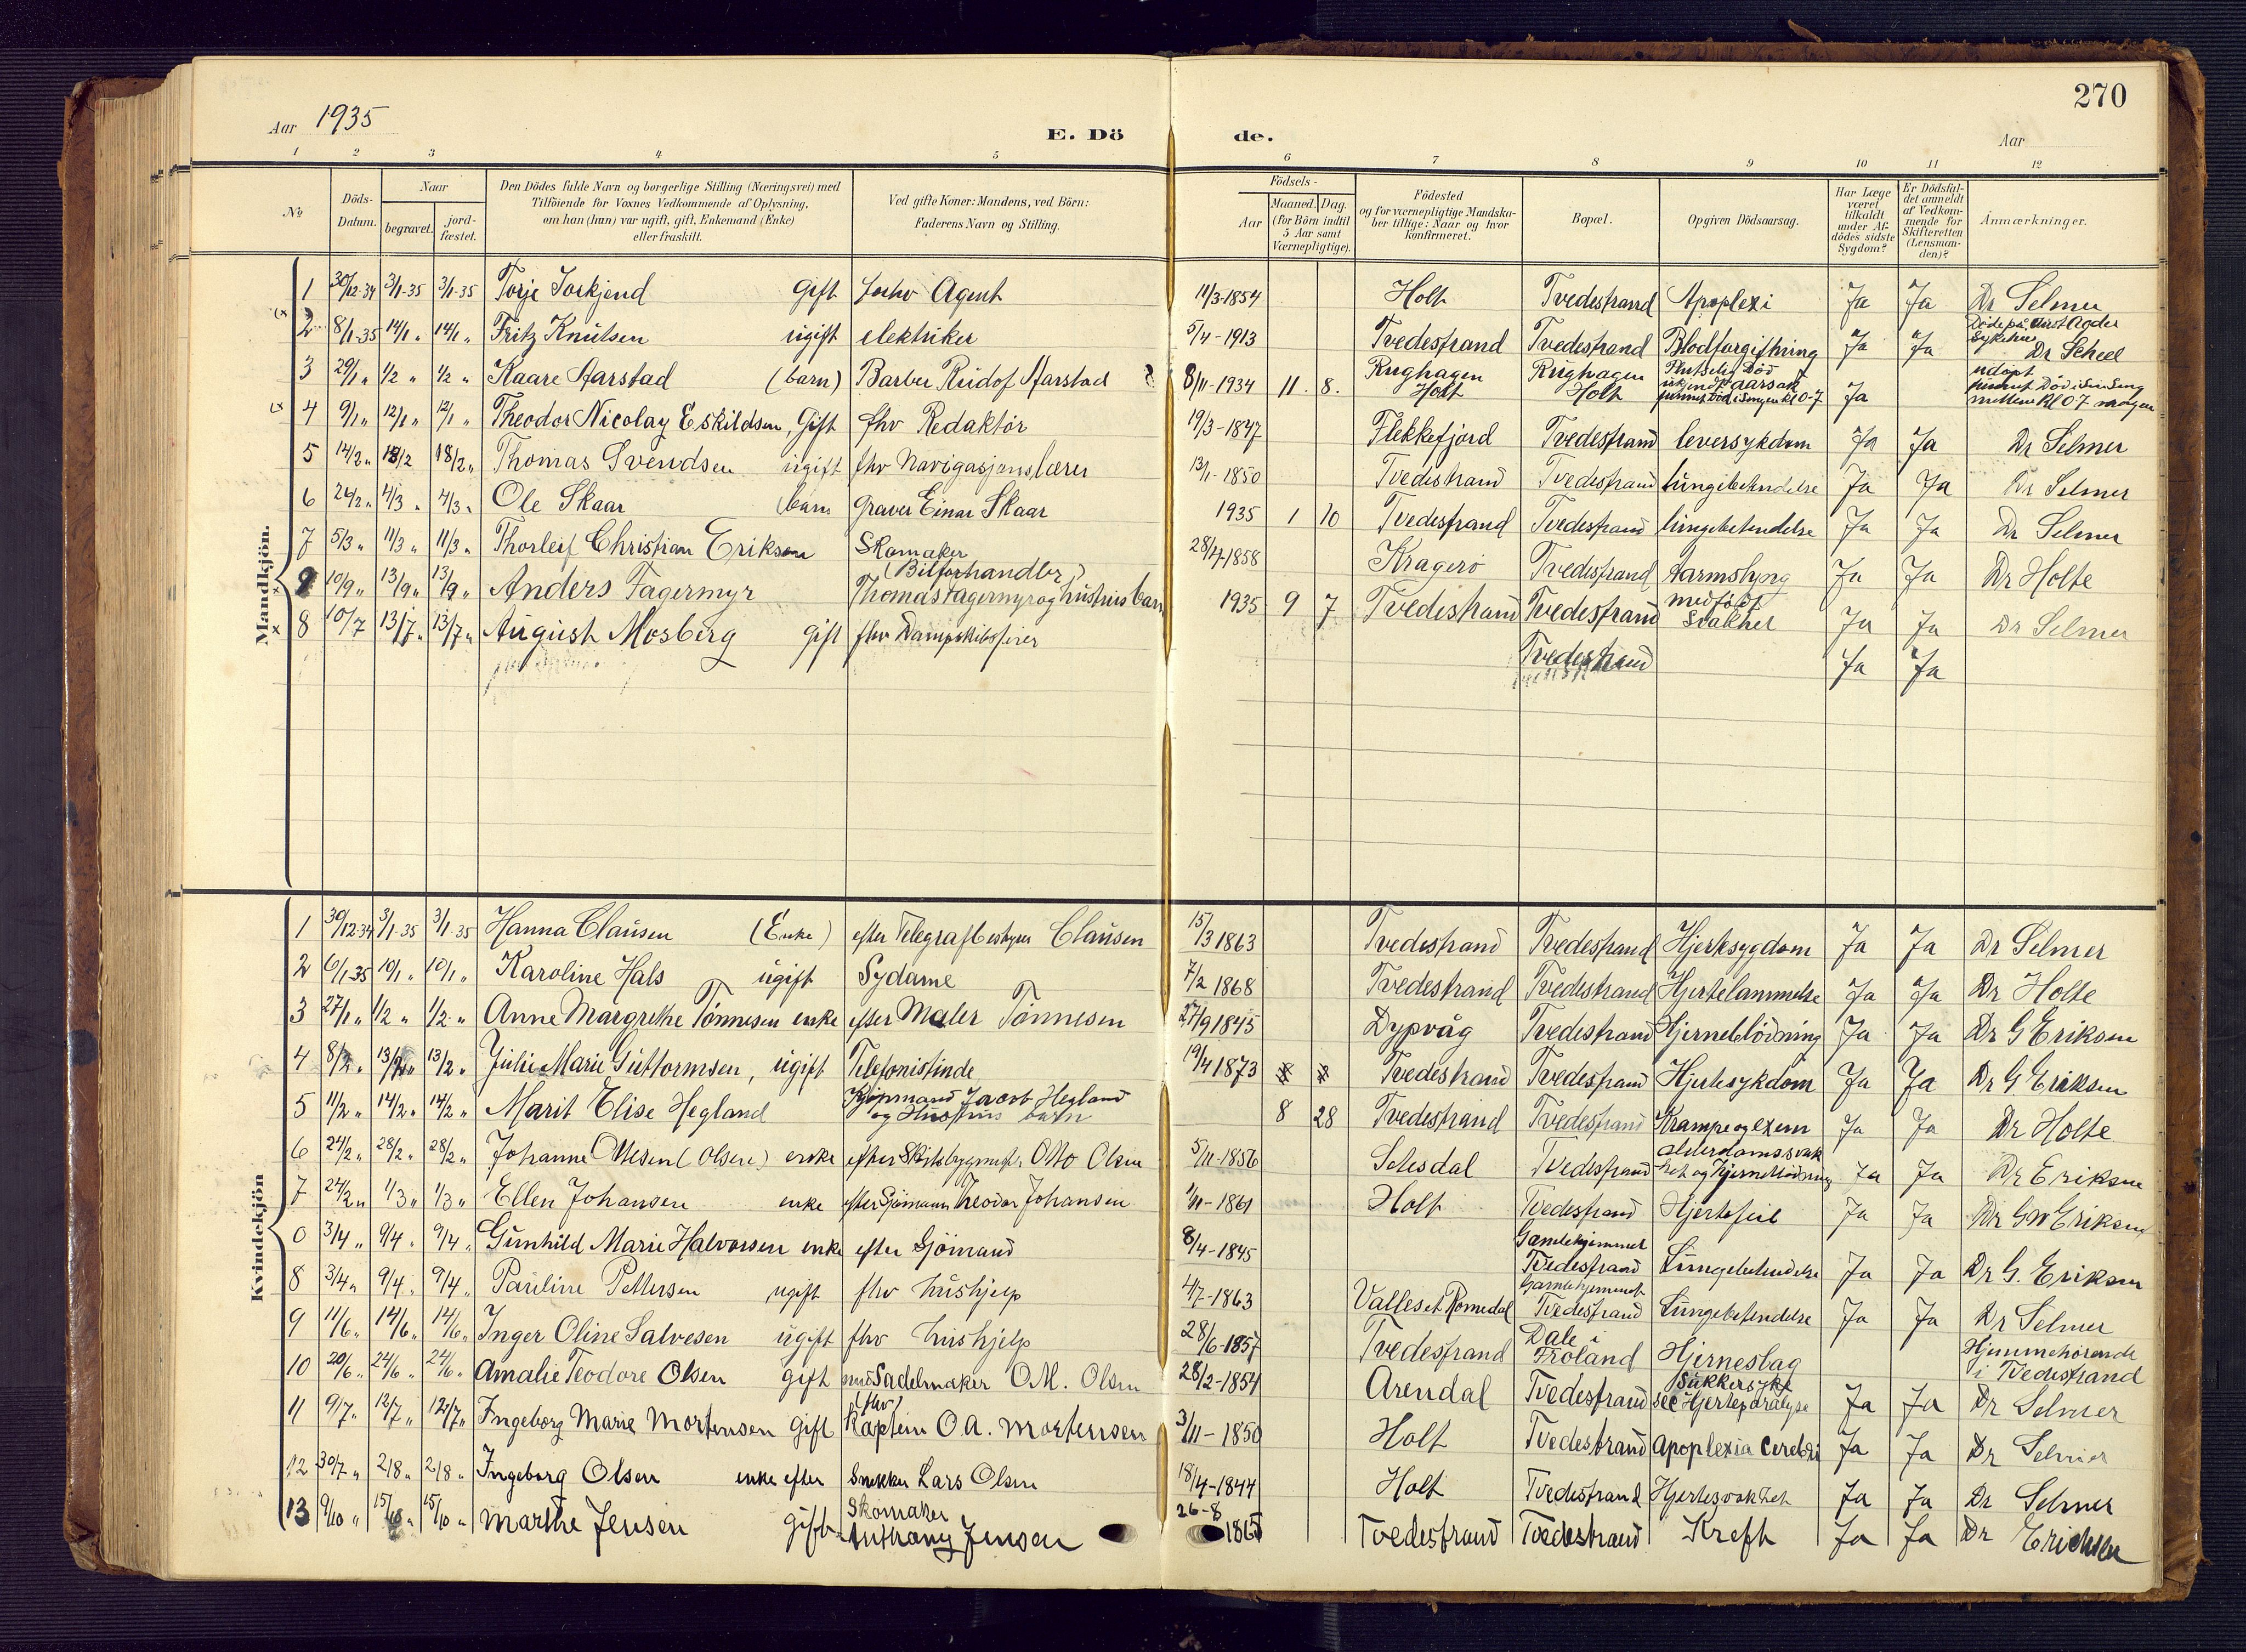 270
Aar 1935
E. Döde.
Aar
1 2 3 4 5 6 7 8 9 10 11 12
No
Döds-Datum.
Naar
begravet.
jord-fæstet.
Den Dödes fulde Navn og borgerlige Stilling (Næringsvei) med
Tilföiende for Voxnes Vedkommende af Oplysning,
om han (hun) var ugift, gift, Enkemand (Enke)
eller fraskilt.
Ved gifte Koner: Mandens, ved Börn:
Faderens Navn og Stilling.
Födsels-
Aar
Maaned. Dag.
(for Börn indtil
5 Aar samt
Værnepligtige).
Födested
og for værnepligtige Mandska-
ber tillige: Naar og hvor
konfirmeret.
Bopæl.
Opgiven Dödsaarsag.
Har Læge
været
tilkaldt
under Af-
dödes sidste
Sygdom?
Er Dödsfal-
det anmeldt
af Vedkom-
mende for
Skifteretten
(Lensman-
den)?
Anmærkninger.
Mandkjön.
1 30/12-34 3/1-35 3/1-35 Torje Goskjend Gift Agent 11/3-1854 Holt Tvedestrand Apoplexi Ja Ja Dr Selmer
2 8/1-35 14/1 " 14/1 " Fritz Knutsen ugift elektriker 5/4-1913 Tvedestrand Tvedestrand Blodforgiftning Ja Ja Döde på Aust Agder
Sykehus
Dr Scheel
3 29/1 " 1/2 " 1/2 " Kaare Aarstad (barn) Barber Rudof Aarstad 8/11-1934 11. 8. Rughagen
Holt Rughagen
Holt Plutselig Död
ukjendt aarsak
funnet Död i Sengen Kl 0-7 Ja udöpt
funnet Död i Sin Seng
mellem Kl 0-7 morgen
4 9/1 " 12/1 " 12/1 " Theodor Nicolay Eskildsen, Gift fhv Redaktör 19/3-1847 Flekkefjord Tvedestrand leversykdom Ja Ja Dr Selmer
5 14/2 " 18/2 18/2 " Thomas Svendsen ugift fhv Navigasjonslærer 13/1-1850 Tvedestrand Tvedestrand lungebetendelse Ja Ja Dr Selmer
6 26/2 " 4/3 " 4/3 " Ole Skaar barn graver Einar Skaar 1935 1 10 Tvedestrand Tvedestrand lungebetendelse Ja Ja Dr Selmer
7 5/3 " 11/3 " 11/3 " Thorleif Christian Eriksen Skomaker 1858 Kragerö Tvedestrand Ja Ja Dr Holte
9 10/9 " 13/9 " 13/9 " Anders Fagermyr (Bilforhandler)
Thomas Fagermyr og hustrus barn 1935 9 7 Tvedestrand Tvedestrand medfödt
Svakhet Ja Ja Dr Selmer
8 10/7 13/7 " 13/7 " August Mosberg gift fhv Dampskibsfører Tvedestrand Ja Ja
Kvindekjön
1 30/12-34 3/1-35 3/1-35 Hanna Clausen (Enke) efter Telegrafbestyrer Clausen 15/3 1863 Tvedestrand Tvedestrand Hjertesygdom Ja Ja Dr Selmer
2 6/1-35 10/1 " 10/1 " Karoline Hals ugift Sydame 7/2 1868 Tvedestrand Tvedestrand Hjertelammelse Ja Ja Dr Holte
3 27/1 " 1/2 " 1/2 " Anne Margrethe Tönnesen enke efter Maler Tönnesen 27/9 1845 Dypvåg Tvedestrand Hjerneblödning Ja Ja Dr G Eriksen
4 8/2 " 13/2 " 13/2 " Julie Marie Guttormsen, ugift Telefonistinde 19/4 1873 Tvedestrand Tvedestrand Hjertesykdom Ja Ja Dr G Eriksen
5 11/2 " 14/2 " 14/2 " Marit Elise Hegland Kjöpmand Jacob Hegland
og Hustrus barn 8 28 Tvedestrand Tvedestrand Krampe og exem Ja Ja Dr Holte
6 24/2 " 28/2 " 28/2 " Johanne Ottesen (Olsen) enke efter Skibsbyggmestr. Otto Olsen 5/11-1856 Setesdal Tvedestrand alderdomssvak
het og Hjerneblödning Ja Ja Dr Eriksen
7 24/2 " 1/3 " 1/3 " Ellen Johansen enke efter Sjömann Theodor Johansen 1/11-1861 Holt Tvedestrand Hjertefeil Ja Ja Dr G W Eriksen
0 3/4 " 9/4 " 9/4 " Gunhild Marie Halvorsen enke efter Sjömand 8/4-1845 Gamlehjemmet
Tvedestrand Lungebetendelse Ja Ja Dr G. Eriksen
8 3/4 " 9/4 " 9/4 Pauline Pettersen ugift fhv hushjelp 4/7-1863 Valleset Romedal Gamlehjemmet
Tvedestrand Lungebetendelse Ja Ja Dr Selmer
9 11/6 " 14/6 " 14/6 " Inger Oline Salvesen ugift fhv hushjelp 28/6-1857 Tvedestrand Dale i
Froland Hjerneslag Hjemmehörende
i Tvedestrand
10 20/6 " 24/6 " 24/6 " Amalie Teodore Olsen gift med Sadelmaker O.M. Olsen 28/2-1854 Arendal Tvedestrand Sukkersyke
sec Hjerteparalyse Ja Ja Dr Selmer
11 9/7 " 12/7 " 12/7 " Ingeborg Marie Mortensen gift (fhv)
Kaptein O.A. Mortensen 3/11-1850 Holt Tvedestrand Apoplexia Cerebri Ja Ja Dr Selmer
12 30/7 " 2/8 " 2/8 " Ingeborg Olsen enke efter Snekker Lars Olsen 18/4-1844 Holt Tvedestrand Hjertesvakhet Ja Ja Dr Selmer
13 9/10 " 15/10 " 15/10 " Marthe Jensen gift Skomaker
Anthony Jensen 26-8 Tvedestrand Tvedestrand Kreft Ja Ja Dr Erichsen